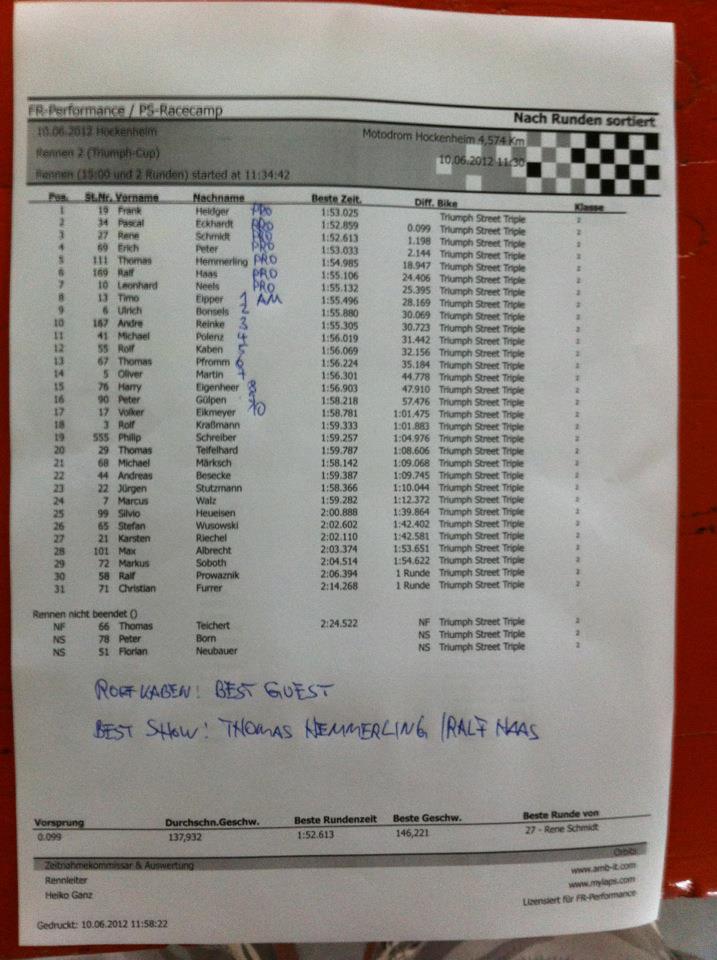 FR-Performance / PS-Racecamp
Nach Runden sortiert
10.06.2012 Hockenheim Motodrom Hockenheim 4,574 Km
Rennen 2 (Triumph-Cup) 10.06.2012 11:30
Rennen (15:00 und 2 Runden) started at 11:34:42
Pos. St.Nr. Vorname Nachname Beste Zeit. Diff. Bike Klasse
1 19 Frank Heidger PRO 1:53.025 Triumph Street Triple 2
2 34 Pascal Eckhardt PRO 1:52.859 0.099 Triumph Street Triple 2
3 27 Rene Schmidt PRO 1:52.613 1.198 Triumph Street Triple 2
4 69 Erich Peter PRO 1:53.033 2.144 Triumph Street Triple 2
5 111 Thomas Hemmerling PRO 1:54.985 18.947 Triumph Street Triple 2
6 169 Ralf Haas PRO 1:55.106 24.406 Triumph Street Triple 2
7 10 Leonhard Neels PRO 1:55.132 25.395 Triumph Street Triple 2
8 13 Timo Eipper 1 AM 1:55.496 28.169 Triumph Street Triple 2
9 6 Ulrich Bonsels 2 1:55.880 30.069 Triumph Street Triple 2
10 167 Andre Reinke 3 1:55.305 30.723 Triumph Street Triple 2
11 41 Michael Polenz 4 1:56.019 31.442 Triumph Street Triple 2
12 55 Rolf Kaben 1:56.069 32.156 Triumph Street Triple 2
13 67 Thomas Pfromm 6 1:56.224 35.184 Triumph Street Triple 2
14 5 Oliver Martin 7 1:56.301 44.778 Triumph Street Triple 2
15 76 Harry Eigenheer 8 1:56.903 47.910 Triumph Street Triple 2
16 90 Peter Gülpen 9 1:58.218 57.476 Triumph Street Triple 2
17 17 Volker Eikmeyer 10 1:58.781 1:01.475 Triumph Street Triple 2
18 3 Rolf Kraßmann 1:59.333 1:01.883 Triumph Street Triple 2
19 555 Philip Schreiber 1:59.257 1:04.976 Triumph Street Triple 2
20 29 Thomas Teifelhard 1:59.787 1:08.606 Triumph Street Triple 2
21 68 Michael Märksch 1:58.142 1:09.068 Triumph Street Triple 2
22 44 Andreas Besecke 1:59.387 1:09.745 Triumph Street Triple 2
23 22 Jürgen Stutzmann 1:58.366 1:10.044 Triumph Street Triple 2
24 7 Marcus Walz 1:59.282 1:12.372 Triumph Street Triple 2
25 99 Silvio Heueisen 2:00.888 1:39.864 Triumph Street Triple 2
26 65 Stefan Wusowski 2:02.602 1:42.402 Triumph Street Triple 2
27 21 Karsten Riechel 2:02.110 1:42.581 Triumph Street Triple 2
28 101 Max Albrecht 2:03.374 1:53.651 Triumph Street Triple 2
29 72 Markus Soboth 2:04.514 1:54.622 Triumph Street Triple 2
30 58 Ralf Prowaznik 2:06.394 1 Runde Triumph Street Triple 2
31 71 Christian Furrer 2:14.268 1 Runde Triumph Street Triple 2
Rennen nicht beendet ()
NF 66 Thomas Teichert 2:24.522 NF Triumph Street Triple 2
NS 78 Peter Born NS Triumph Street Triple 2
NS 51 Florian Neubauer NS Triumph Street Triple 2
ROLF KABEN! BEST GUEST
BEST SHOW! THOMAS HEMMERLING / RALF HAAS
Vorsprung Durchschn.Geschw. Beste Rundenzeit Beste Geschw. Beste Runde von
0.099 137,932 1:52.613 146,221 27 - Rene Schmidt
Zeitnahmekommissar & Auswertung Orbits
Rennleiter www.amb-it.com
Heiko Ganz www.mylaps.com
Lizensiert für FR-Performance
Gedruckt: 10.06.2012 11:58:22